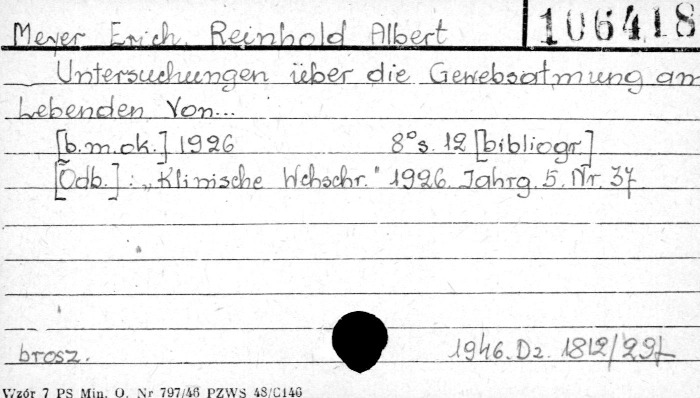 Meyer Erich, Reinhold Albert 106418
Untersuchungen über die Gewebsatmung am
Lebenden Von...
[b.m.ok.] 1926 8°s. 12 [bibliogr.]
[Odb.]: „Klinische Wchschr." 1926. Jahrg. 5. Nr. 37.
brosz. 1946. Dz. 1812/297
Wzór 7 PS Min. O. Nr 797/46 PZWS 48/C146